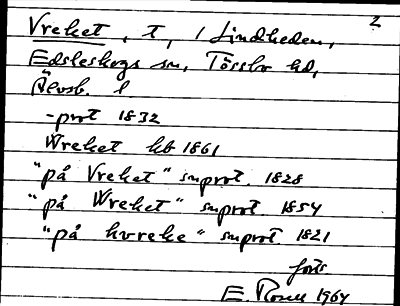 2
Vreket, t, i Lindheden,
Edsleskogs sn, Tössbo hd,
Älvsb. l
-prot 1832
Wreket hb 1861
"på Vreket" snprot. 1828
"på Wreket" snprot. 1854
"på hvreke" snprot. 1821
forts
E. Rosell 1964